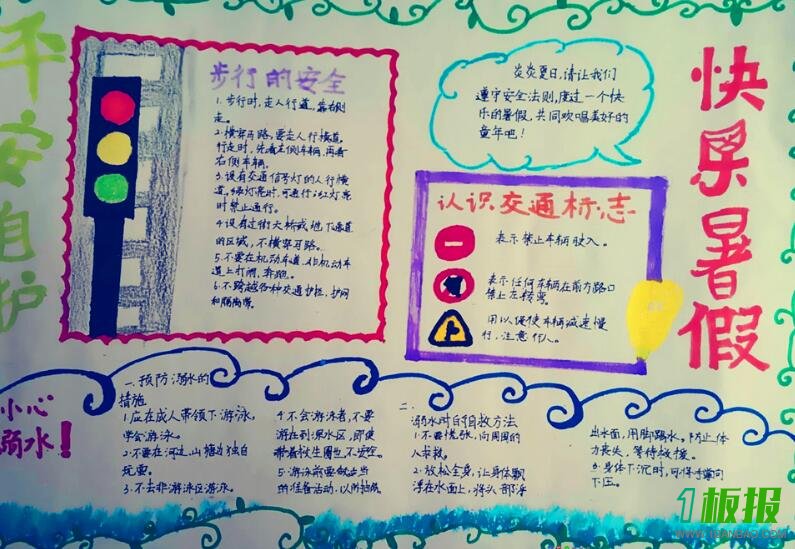 平
安
自
护
步行的安全
1.步行时,走人行道,靠右侧
走。
2.横穿马路,要走人行横道,
行走时,先看左侧车辆,再看
右侧车辆。
3.设有交通信号灯的人行横
道,绿灯亮时,可通行;红灯亮
时禁止通行。
4.设有过街天桥或地下通道
的区域,不横穿马路。
5.不要在机动车道、非机动车
道上打闹、奔跑。
6.不跨越各种交通护栏、护网
和隔离带。
炎炎夏日,请让我们
遵守安全法则,度过一个快
乐的暑假,共同欢唱美好的
童年吧!
认识交通标志
表示禁止车辆驶入。
表示任何车辆在前方路口
禁止左转弯。
用以促使车辆减速慢
行,注意行人。
快
乐
暑
假
小心
溺水!
一.预防溺水的
措施
1.应在成人带领下游泳,
学会游泳。
2.不要在河边、山塘边独自
玩耍。
3.不去非游泳区游泳。
4.不会游泳者,不要
游在到深水区,即使
带着救生圈也不安全。
5.游泳前要做适当
的准备活动,以防抽筋
二.
溺水时的自救方法
1.不要慌张,向周围的
人求救。
2.放松全身,让身体飘
浮在水面上,将头部浮
出水面,用脚踢水,防止体
力丧失,等待救援。
3.身体下沉时,可将手掌向
下压。
1板报
WWW.1BANBAO.COM